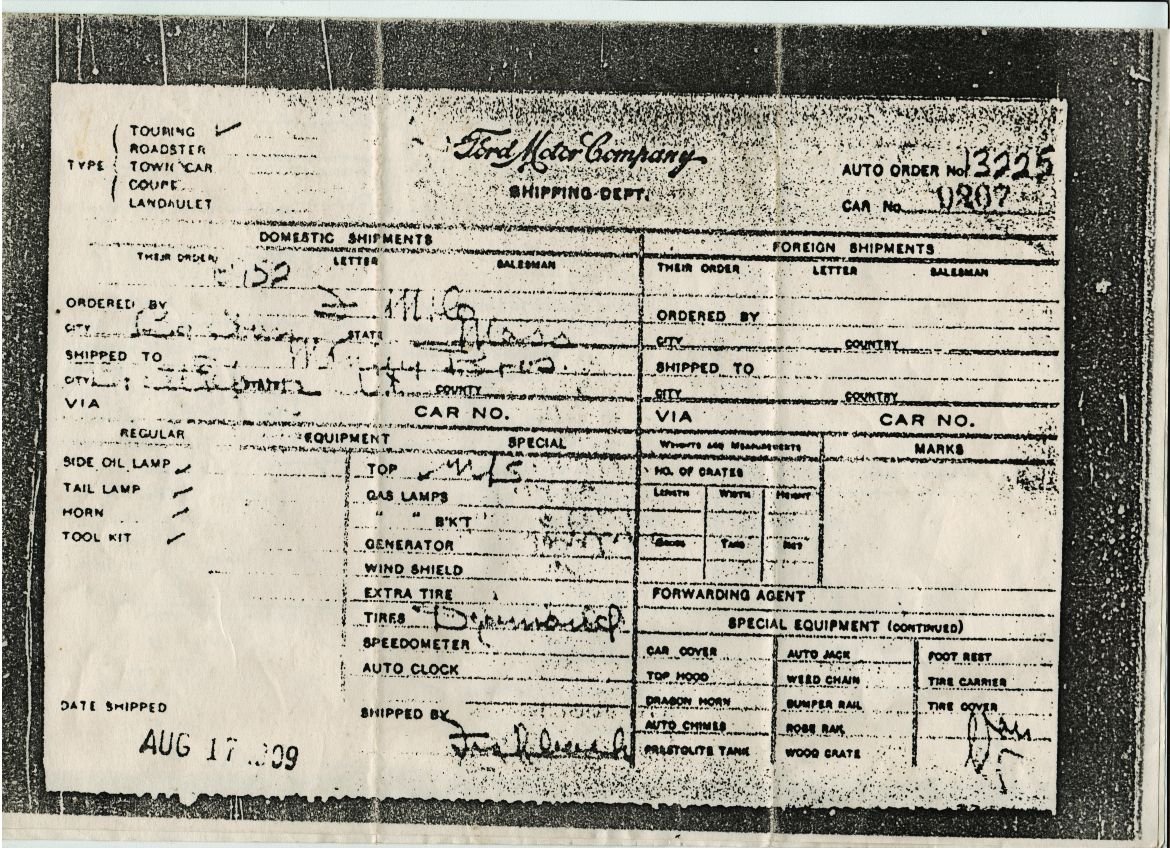 TYPE
TOURING ✓
ROADSTER
TOWN CAR
COUPE
LANDAULET
Ford Motor Company
SHIPPING DEPT.
AUTO ORDER No. 13225
CAR No.
DOMESTIC SHIPMENTS
THEIR ORDER LETTER SALESMAN
152
ORDERED BY M. Co
CITY STATE Mass
SHIPPED TO
CITY COUNTY
VIA CAR NO.
FOREIGN SHIPMENTS
THEIR ORDER LETTER SALESMAN
ORDERED BY
CITY COUNTRY
SHIPPED TO
CITY COUNTRY
VIA CAR NO.
REGULAR EQUIPMENT SPECIAL
SIDE OIL LAMP ✓
TAIL LAMP ✓
HORN ✓
TOOL KIT ✓
TOP ✓
GAS LAMPS
" " B'K'T
GENERATOR
WIND SHIELD
EXTRA TIRE
TIRES Diamond
SPEEDOMETER
AUTO CLOCK
WEIGHTS AND MEASUREMENTS MARKS
NO. OF CRATES
LENGTH WIDTH HEIGHT
GROSS TARE NET
FORWARDING AGENT
SPECIAL EQUIPMENT (CONTINUED)
CAR COVER AUTO JACK FOOT REST
TOP HOOD WEED CHAIN TIRE CARRIER
DRAGON HORN BUMPER RAIL TIRE COVER
AUTO CHIMES ROBE RAIL
PRESTOLITE TANK WOOD CRATE
DATE SHIPPED
AUG 17 1909
SHIPPED BY